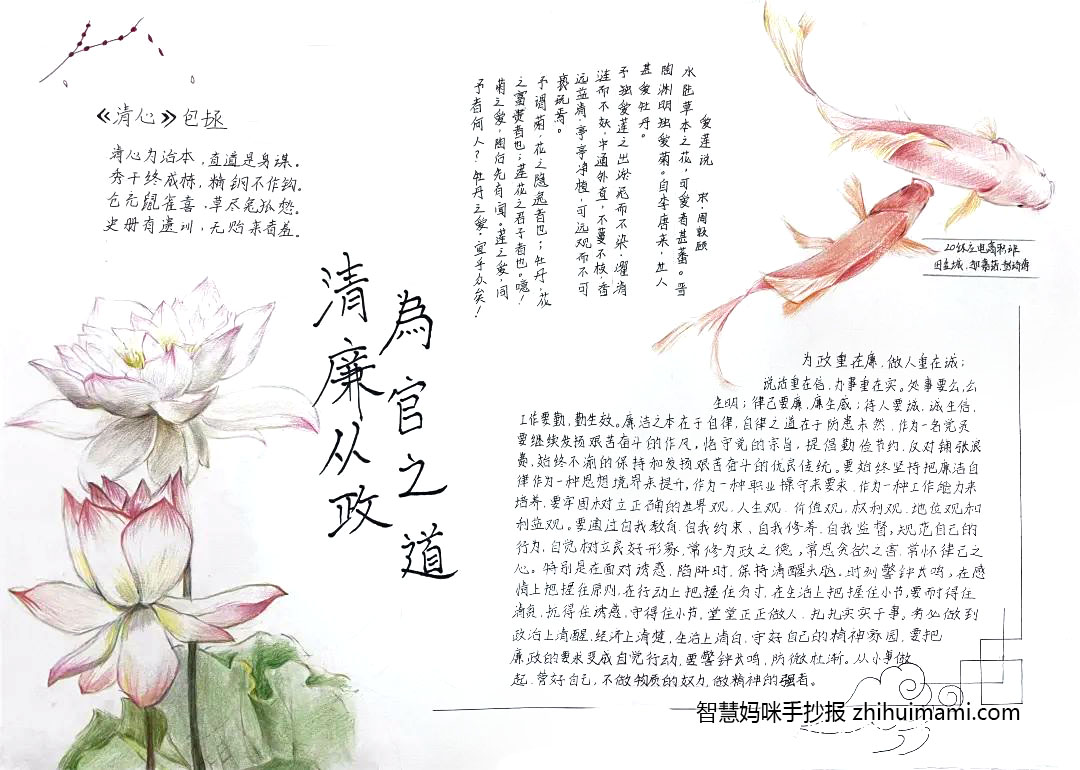 《清心》包拯
清心为治本，直道是身谋。
秀干终成栋，精钢不作钩。
仓充鼠雀喜，草尽兔狐愁。
史册有遗训，无贻来者羞。
為官之道
清廉从政
爱莲说 宋·周敦颐
水陆草木之花，可爱者甚蕃。晋
陶渊明独爱菊。自李唐来，世人
甚爱牡丹。
予独爱莲之出淤泥而不染，濯清
涟而不妖，中通外直，不蔓不枝，香
远益清，亭亭净植，可远观而不可
亵玩焉。
予谓菊，花之隐逸者也；牡丹，花
之富贵者也；莲，花之君子者也。噫！
菊之爱，陶后鲜有闻。莲之爱，同
予者何人？牡丹之爱，宜乎众矣！
为政重在廉，做人重在诚；
说话重在信，办事重在实。处事要公，公
生明；律己要廉，廉生威；待人要诚，诚生信，
工作要勤，勤生效。廉洁之本在于自律，自律之道在于防患未然，作为一名党员
要继续发扬艰苦奋斗的作风，恪守党的宗旨，提倡勤俭节约，反对铺张浪
费，始终不渝的保持和发扬艰苦奋斗的优良传统。要始终坚持把廉洁自
律作为一种思想境界来提升，作为一种职业操守来要求，作为一种工作能力来
培养，要牢固树立正确的世界观，人生观，价值观，权利观，地位观和
利益观。要通过自我教育，自我约束，自我修养，自我监督，规范自己的
行为，自觉树立良好形象，常修为政之德，常思贪欲之害，常怀律己之
心。特别是在面对诱惑，陷阱时，保持清醒头脑，时刻警钟长鸣，在感
情上把握住原则，在行动上把握住分寸，在生活上把握住小节，要耐得住
清贫，抗得住诱惑，守得住小节，堂堂正正做人，扎扎实实干事。务必做到
政治上清醒，经济上清楚，生活上清白，守好自己的精神家园，要把
廉政的要求变成自觉行动，要警钟长鸣，防微杜渐。从小事做
起，管好自己，不做物质的奴力，做精神的强者。
智慧妈咪手抄报 zhihuimami.com